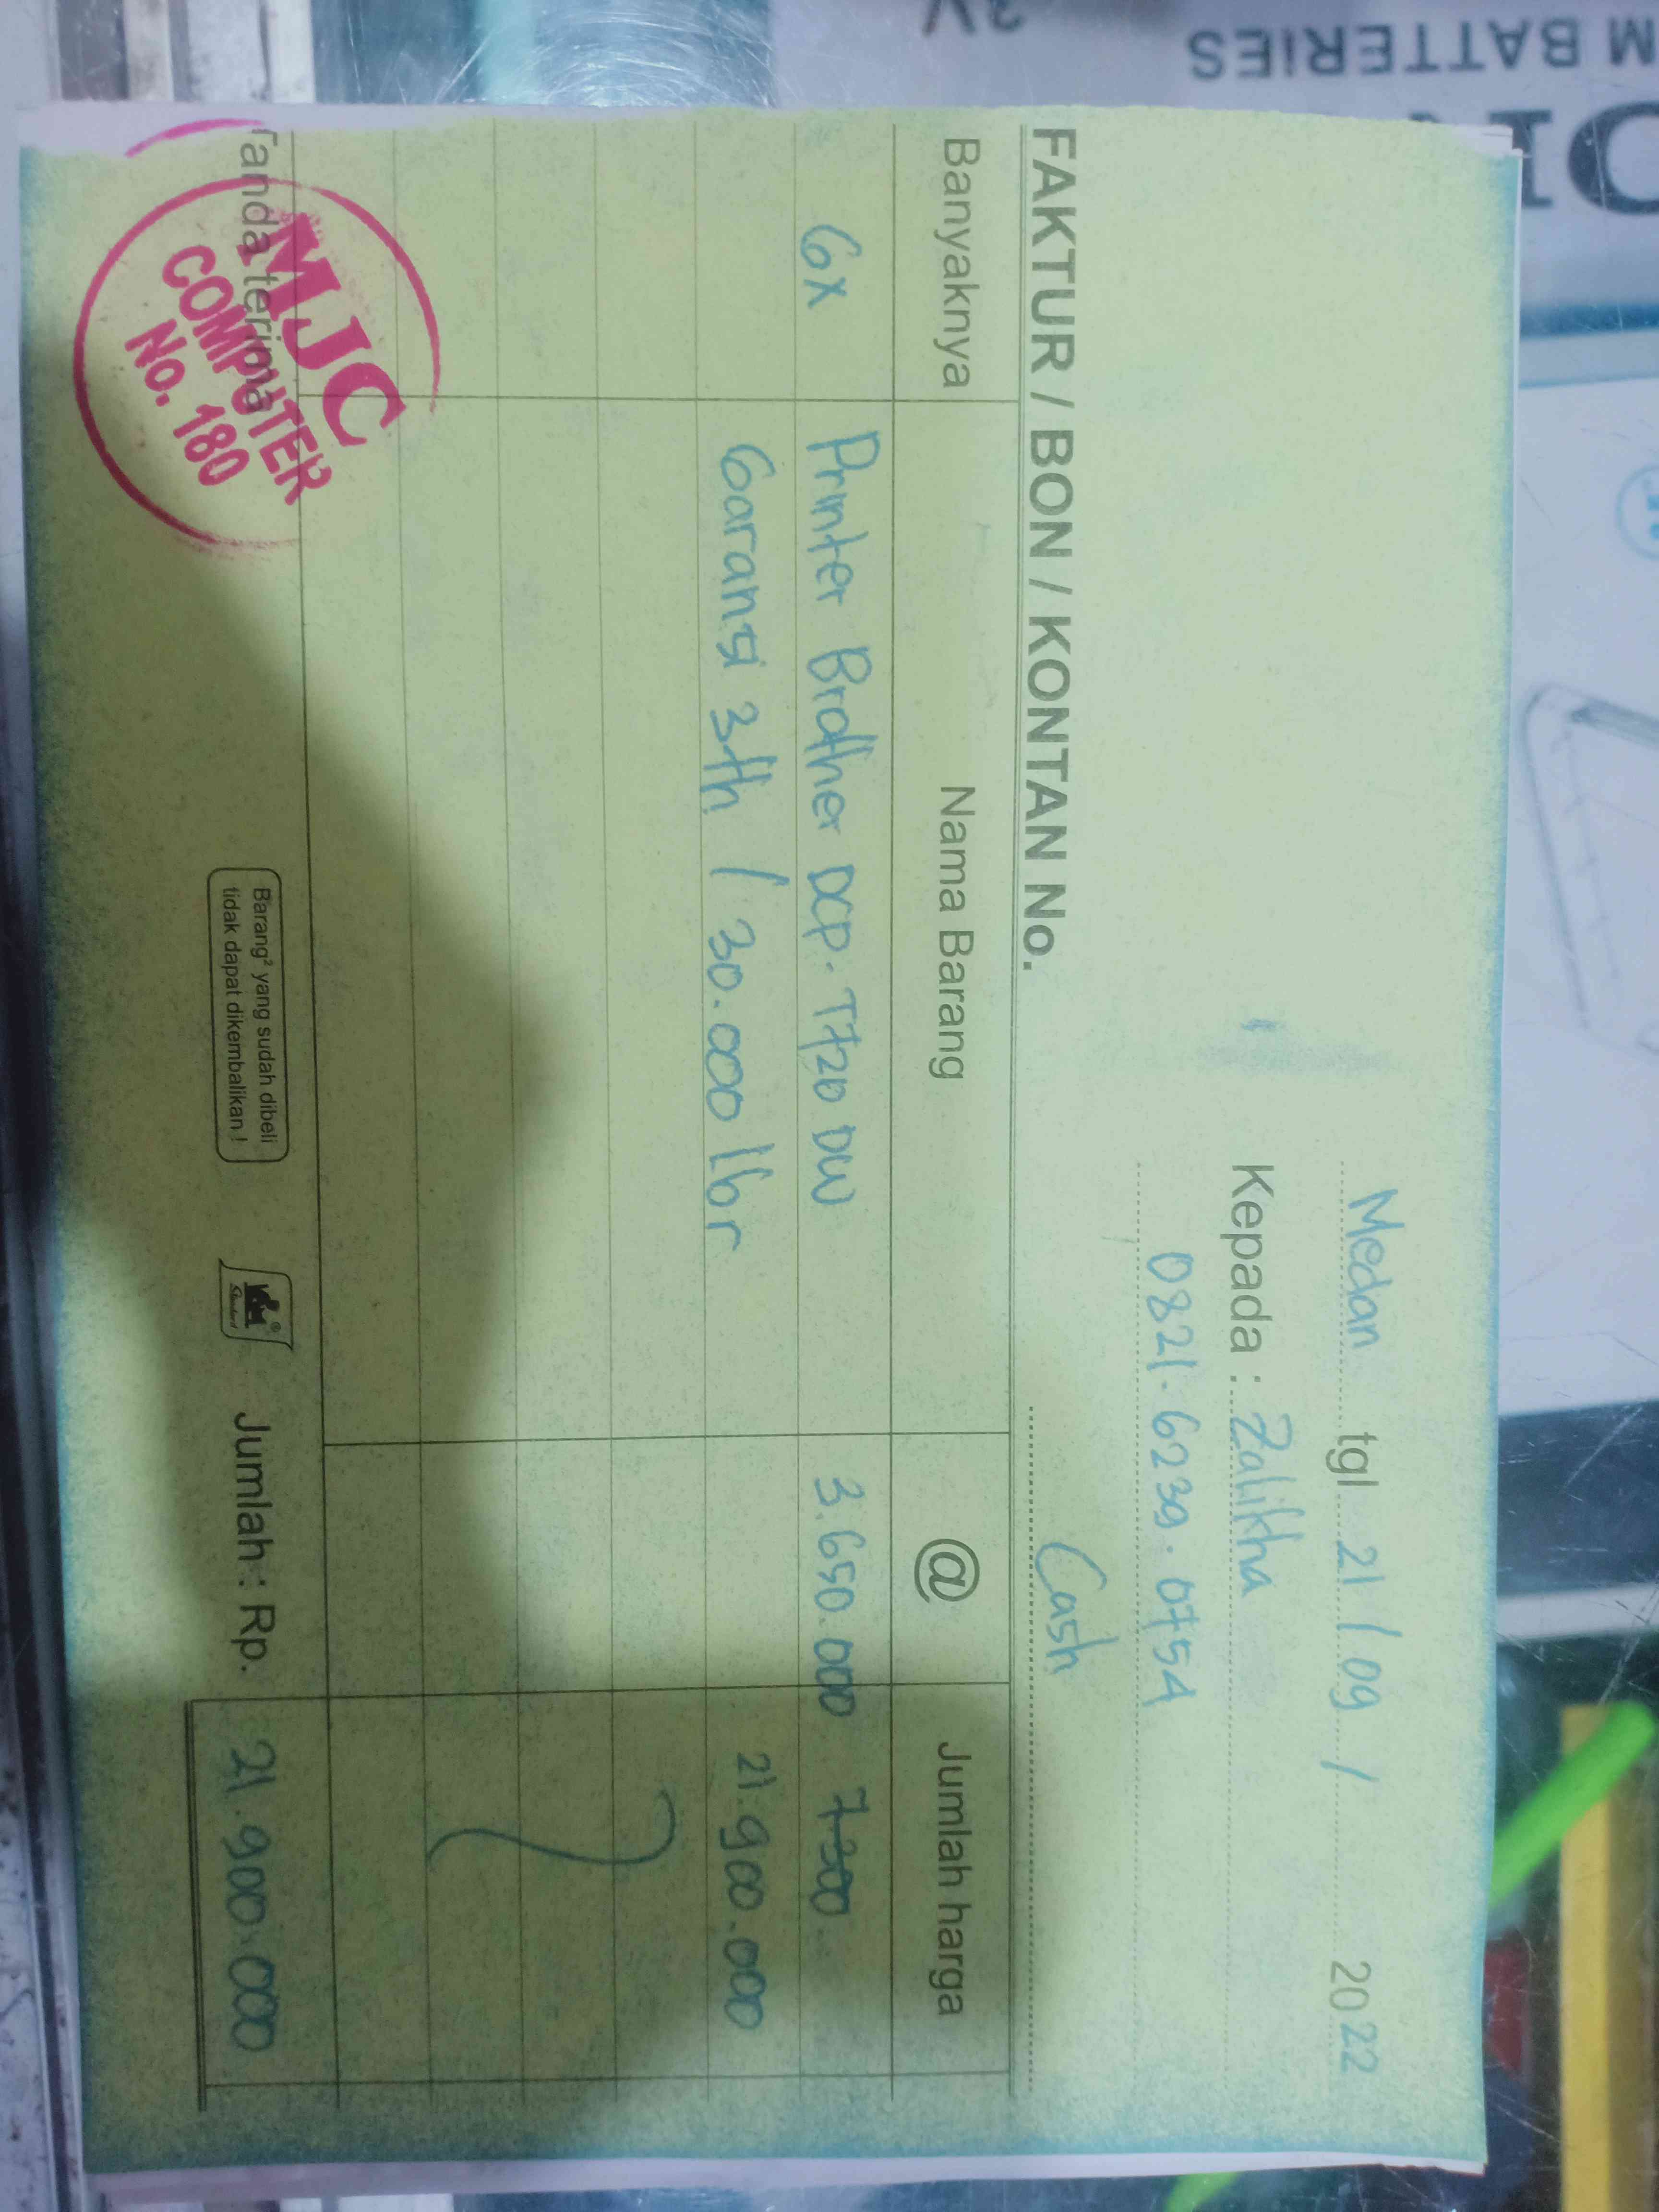 Medan tgl. 21 / 09 / 2022
Kepada : Zalikha
0821.6239.0754
FAKTUR / BON / KONTAN No. Cash
Banyaknya Nama Barang @ Jumlah harga
6x Printer Brother DCP. T720 DW 3.650.000 7300.
Garansi 3th / 30.000 lbr 21.900.000
Tanda terima
MJC
COMPUTER
No. 180
Barang² yang sudah dibeli
tidak dapat dikembalikan !
Jumlah : Rp. 21.900.000
M BATTERIES
3V